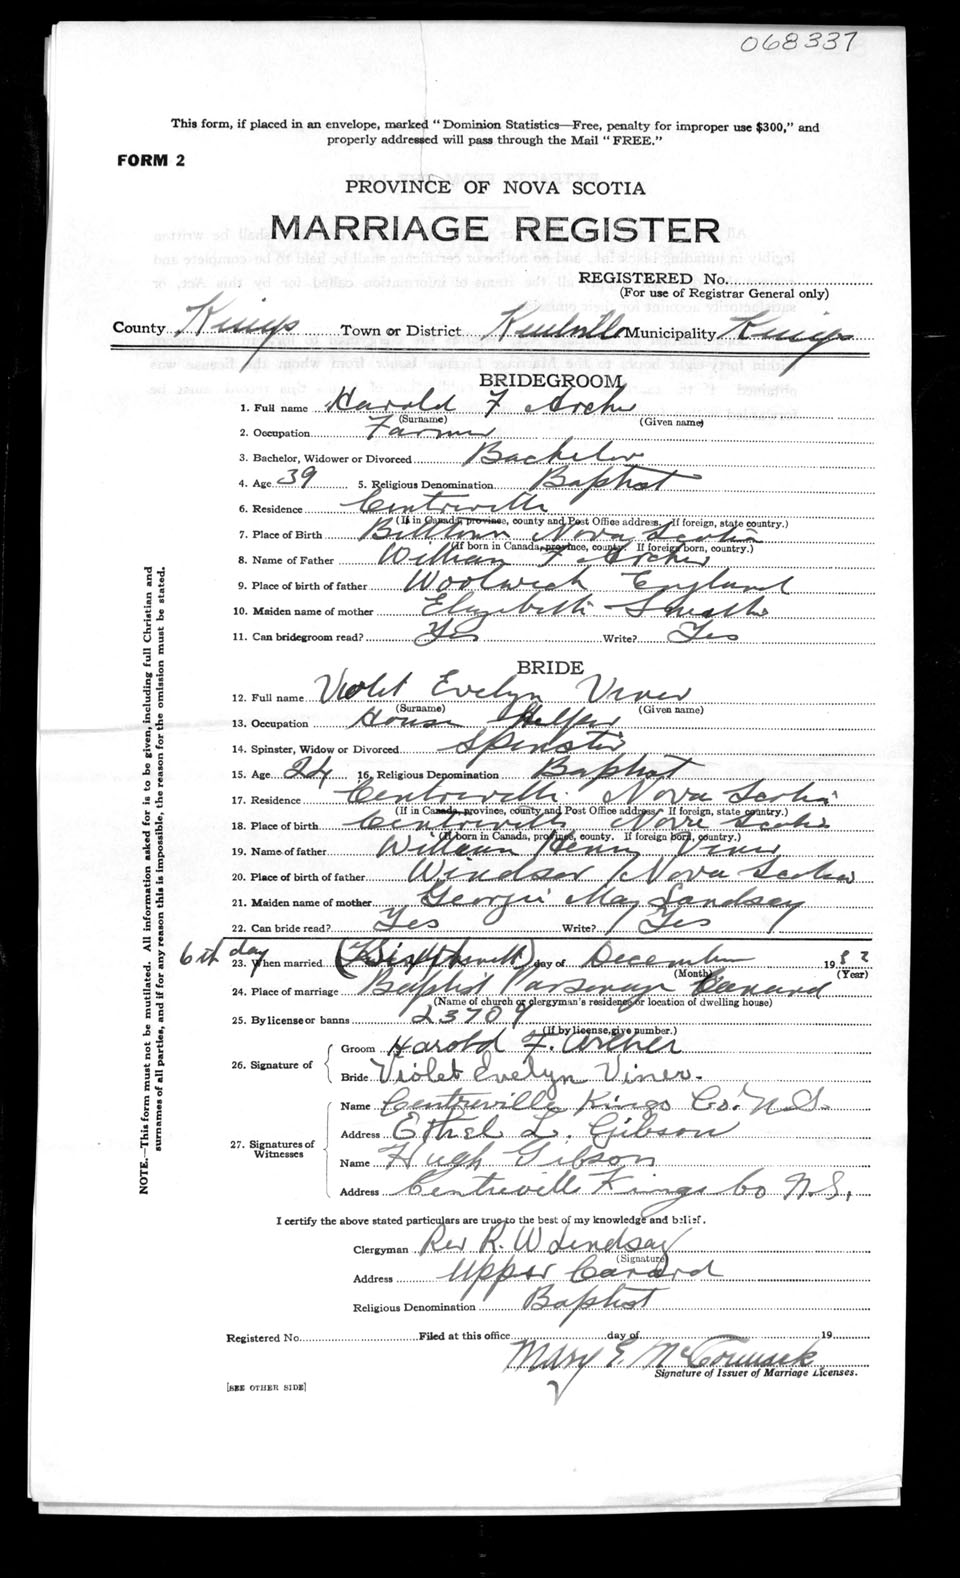 068337
This form, if placed in an envelope, marked "Dominion Statistics—Free, penalty for improper use $300," and
properly addressed will pass through the Mail "FREE."
FORM 2
PROVINCE OF NOVA SCOTIA
MARRIAGE REGISTER
REGISTERED No.
(For use of Registrar General only)
County Kings Town or District Kentville Municipality Kings
BRIDEGROOM
1. Full name Harold F Archer
(Surname) (Given name)
2. Occupation Farmer
3. Bachelor, Widower or Divorced Bachelor
4. Age 39 5. Religious Denomination Baptist
6. Residence Centreville
(If in Canada, province, county and Post Office address. If foreign, state country.)
7. Place of Birth Billtown Nova Scotia
(If born in Canada, province, county. If foreign born, country.)
8. Name of Father William F Archer
9. Place of birth of father Woolwich England
10. Maiden name of mother Elizabeth
11. Can bridegroom read? Yes Write? Yes
BRIDE
12. Full name Violet Evelyn Viner
(Surname) (Given name)
13. Occupation House Helper
14. Spinster, Widow or Divorced Spinster
15. Age 24 16. Religious Denomination Baptist
17. Residence Centreville Nova Scotia
(If in Canada, province, county and Post Office address. If foreign, state country.)
18. Place of birth Centreville Nova Scotia
(If born in Canada, province, county. If foreign born, country.)
19. Name of father William Henry Viner
20. Place of birth of father Windsor Nova Scotia
21. Maiden name of mother Georgie May Landsay
22. Can bride read? Yes Write? Yes
6th day
23. When married day of December 1932
(Month) (Year)
24. Place of marriage Baptist Parsonage Canard
(Name of church or clergyman's residence or location of dwelling house)
25. By license or banns 23709
(If by license, give number.)
26. Signature of
Groom Harold F. Archer
Bride Violet Evelyn Viner.
27. Signatures of Witnesses
Name Centreville Kings Co. N.S.
Address Ethel L. Gibson
Name Hugh Gibson
Address Centreville Kings Co N.S.
I certify the above stated particulars are true to the best of my knowledge and belief.
Clergyman Rev R. W Lindsay
(Signature)
Address Upper Canard
Religious Denomination Baptist
Registered No. Filed at this office day of 19
Mary E. McCormack
Signature of Issuer of Marriage Licenses.
[SEE OTHER SIDE]
NOTE.—This form must not be mutilated. All information asked for is to be given, including full Christian and
surnames of all parties, and if for any reason this is impossible, the reason for the omission must be stated.